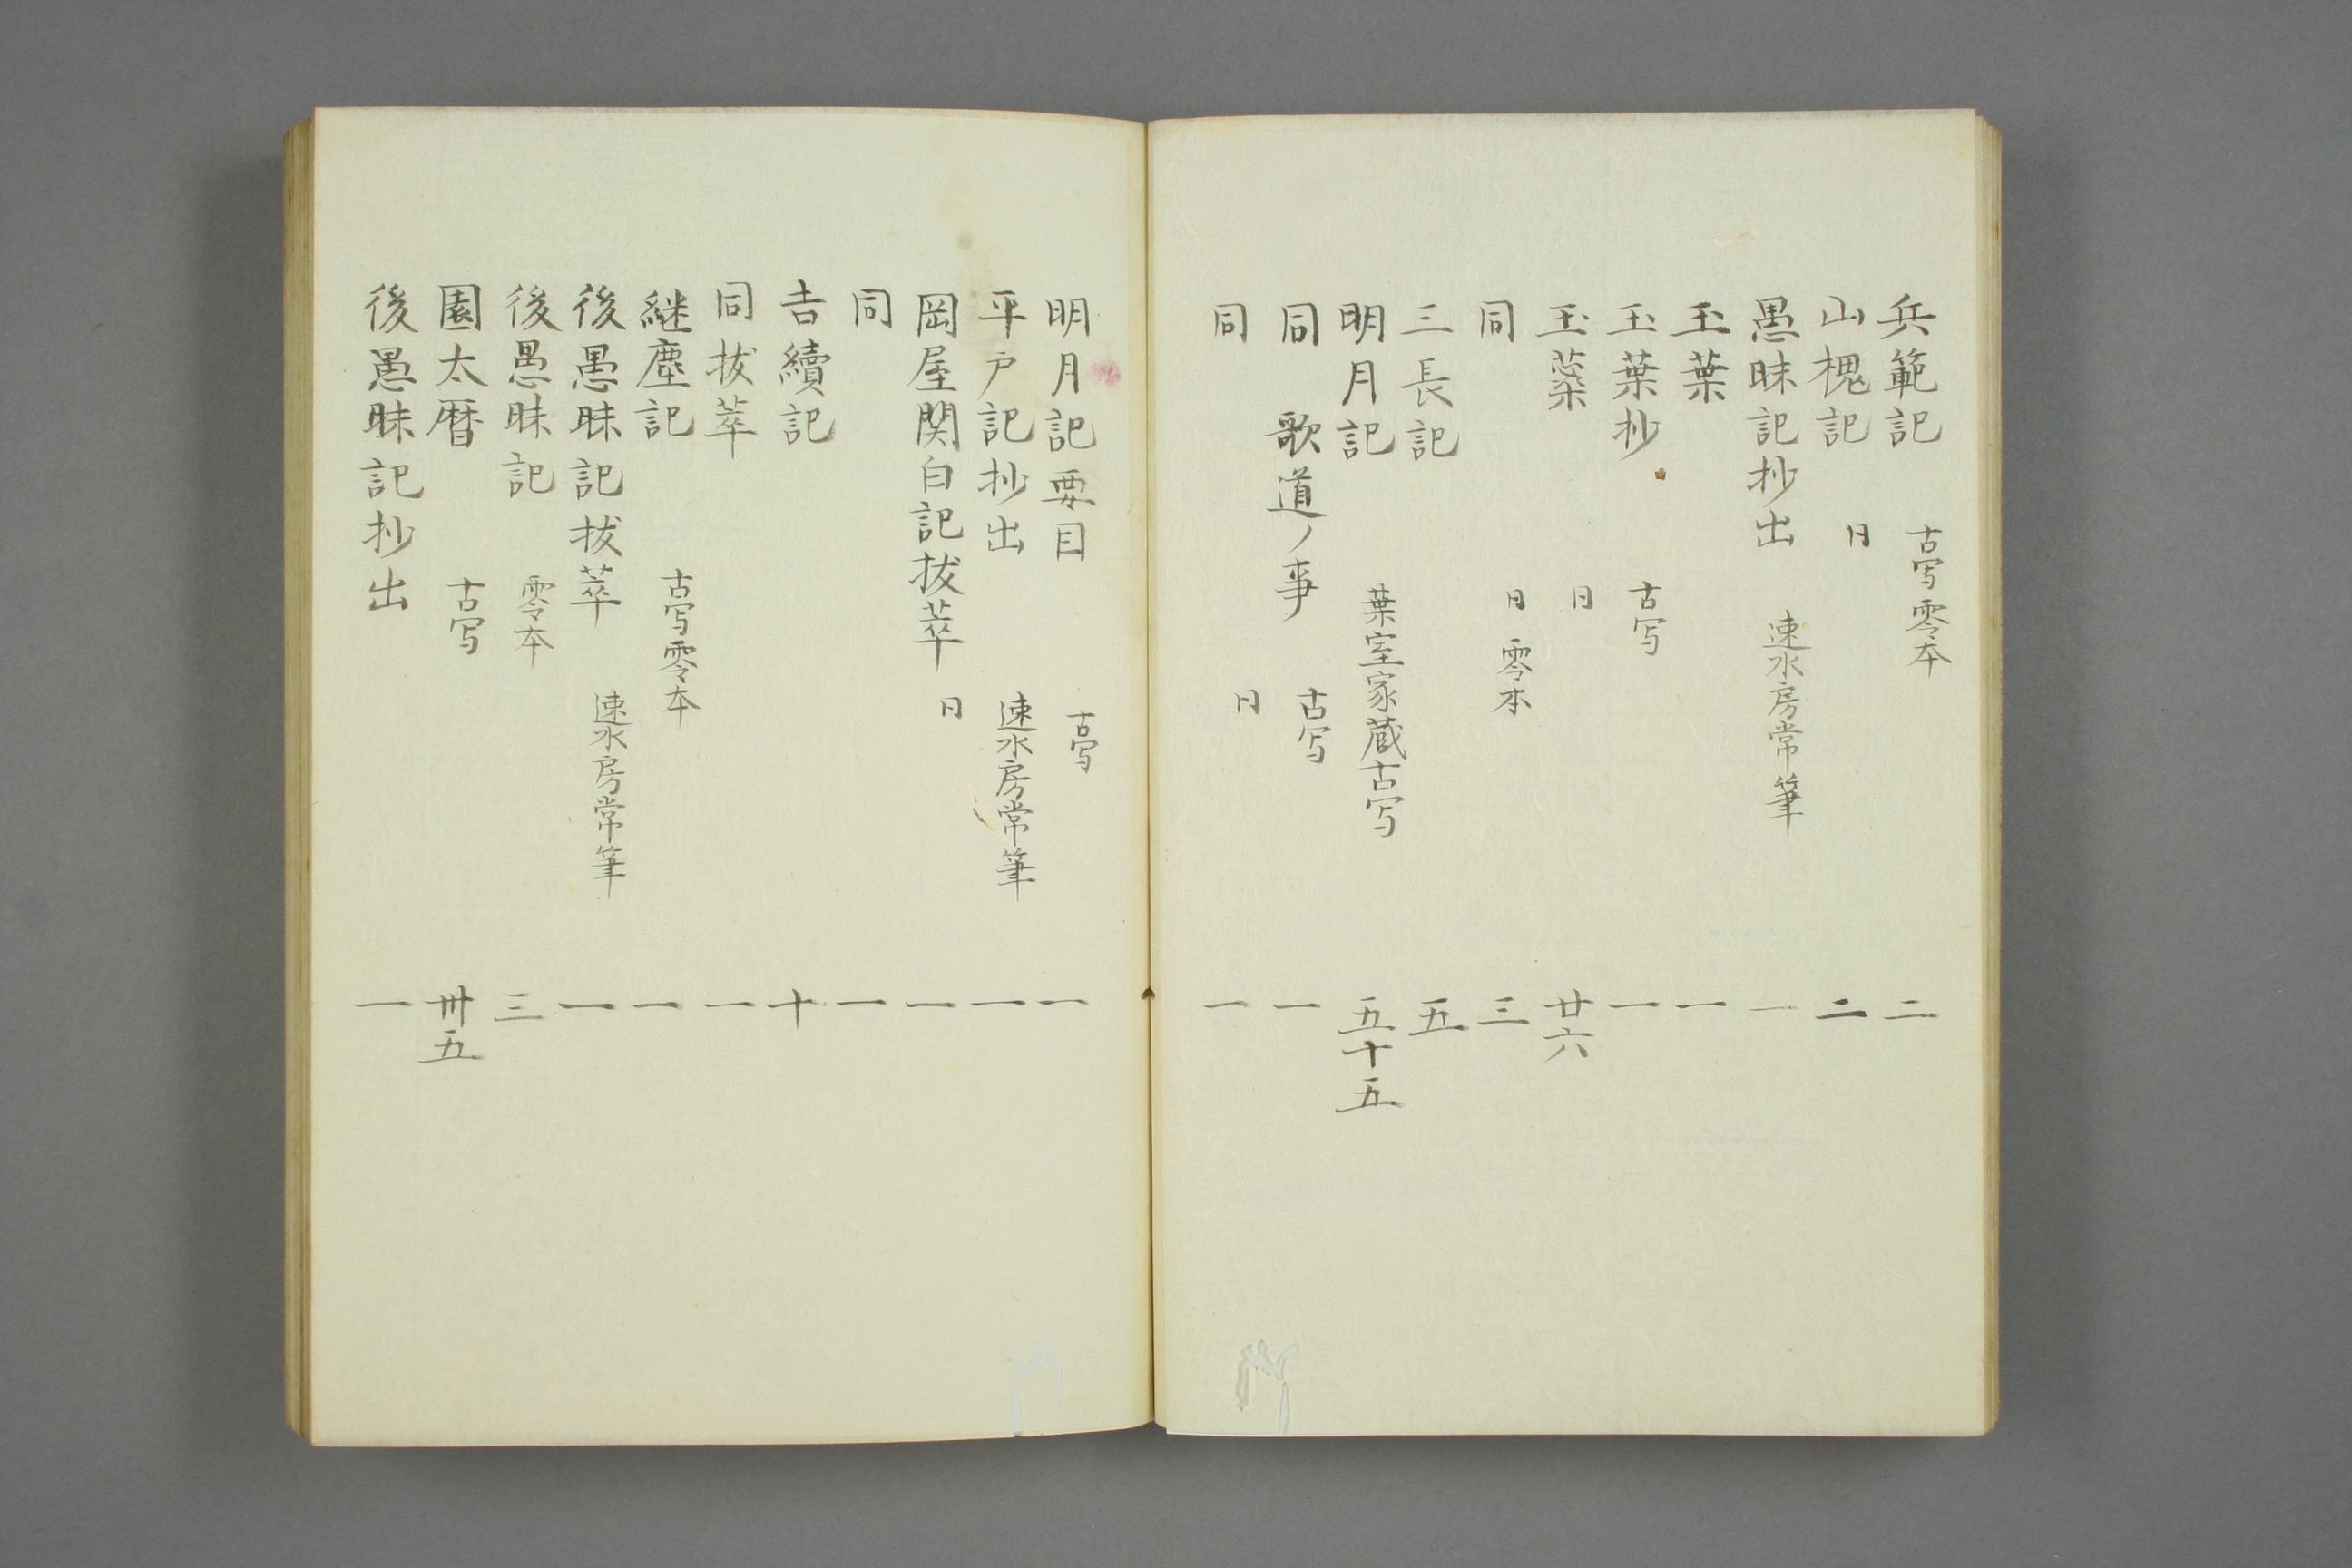 兵範記 古写零本 二
山槐記 〻 二
愚昧記抄出 速水房常筆 一
玉葉 一
玉葉抄 古写 一
玉蘂 仝 廿六
同 仝 零本 三
三長記 五
明月記 葉室家蔵古写 五十五
同 歌道ノ事 古写 一
同 仝 一
明月記要目 古写 一
平戸記抄出 速水房常筆 一
岡屋関白記拔萃 仝 一
同 一
吉續記 十
同拔萃 一
継塵記 古写零本 一
後愚昧記拔萃 速水房常筆 一
後愚昧記 零本 三
園太暦 古写 卅五
後愚昧記抄出 一